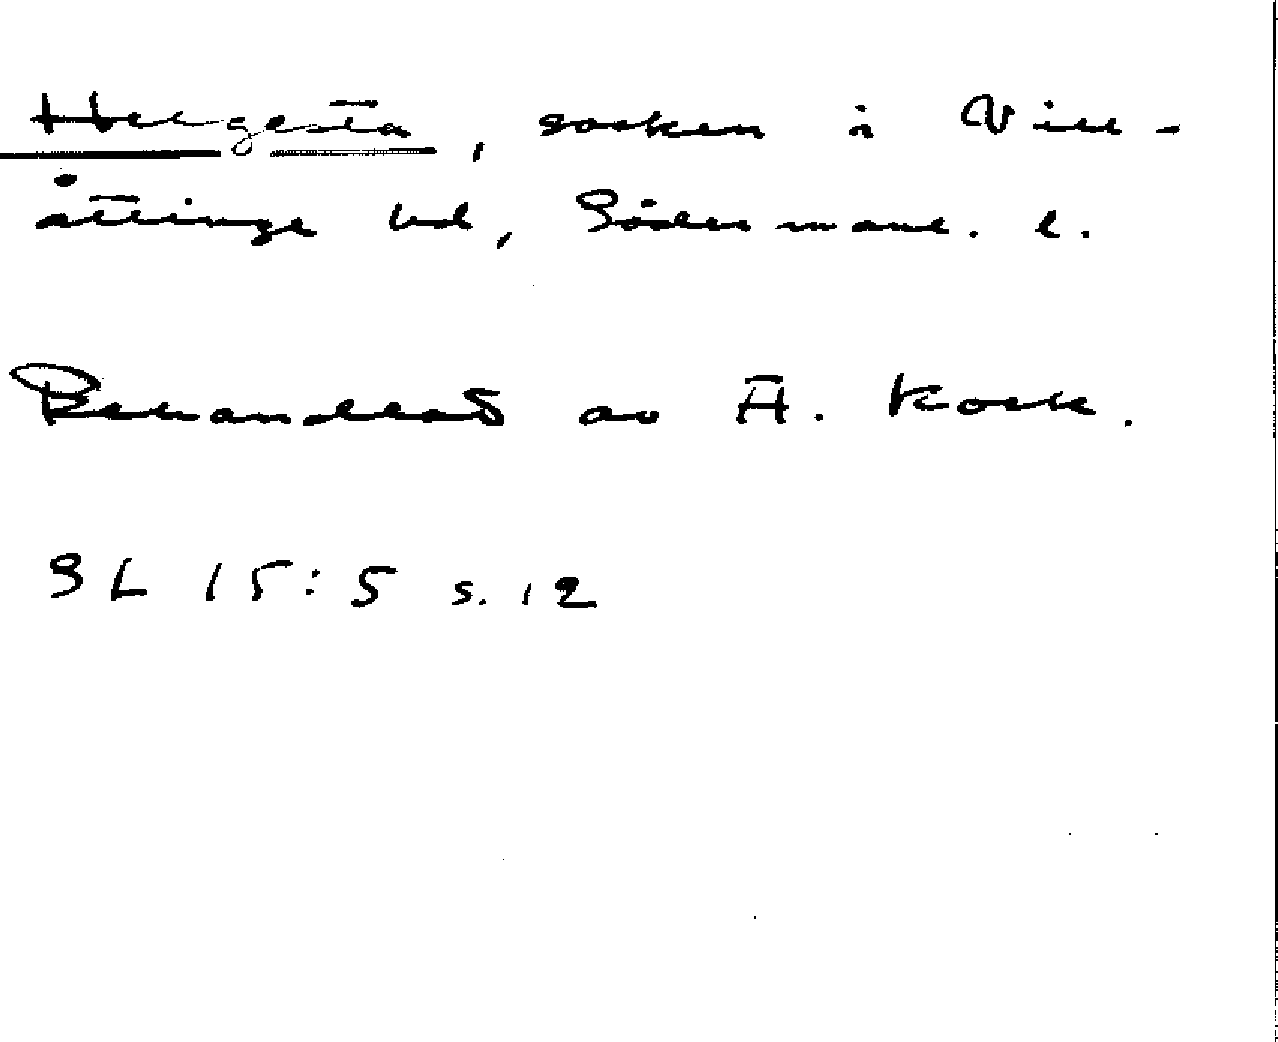 Helgesta, socken i Vill-
åttinge hd, Södermanl. l.
Behandlat av A. Kock.
SL 15:5 s. 12